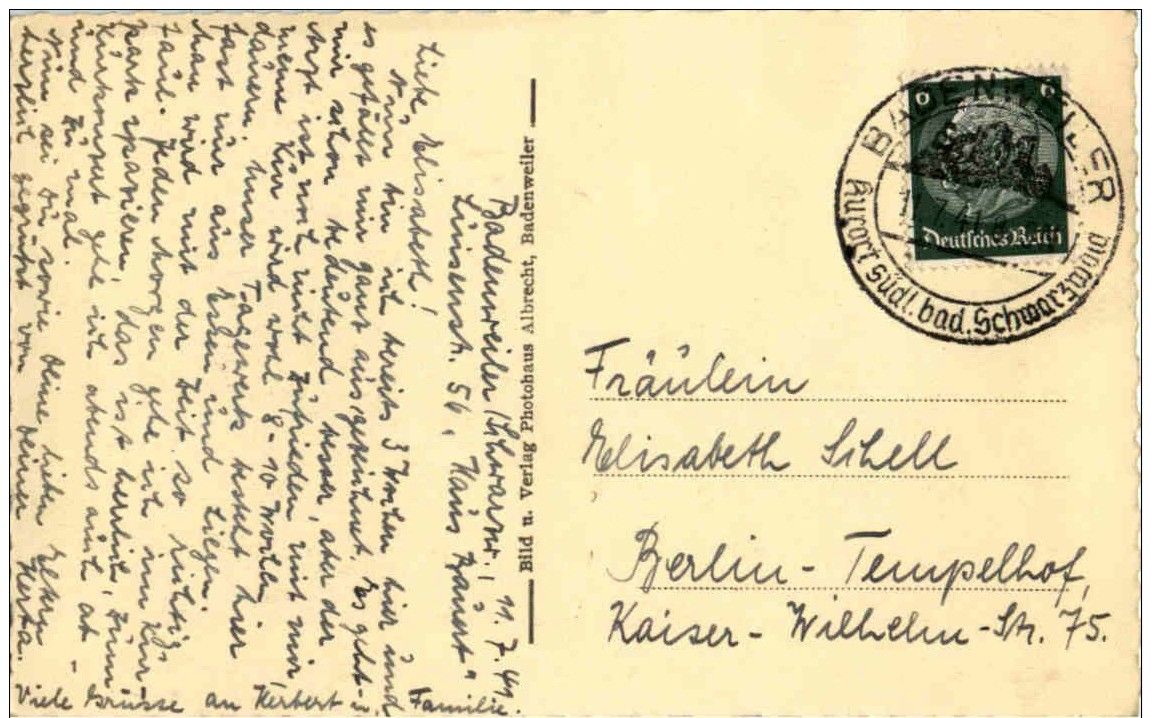 Badenweiler (Schwarzw.), 11.7.41
Luisenstr. 56, Haus Bäuert"
Liebe Elisabeth!
Nun bin ich bereits 3 Wochen hier und
es gefällt mir ganz ausgezeichnet. Es geht
mir schon bedeutend besser, aber der
Arzt ist noch nicht zufrieden mit mir,
meine Kur wird wohl 8-10 Wochen
dauern. Unser Tagewerk besteht hier
fast nur aus Essen und Liegen.
Man wird mit der Zeit so richtig
faul. Jeden Morgen gehe ich im Kur-
park spazieren, das ist herrlich, zum
Kurkonzert gehe ich abends auch ab
und zu mal.
Nun sei Du sowie Deine lieben Eltern
herzlich gegrüßt von Deiner Herta.
Viele Grüsse an Herbert u. Familie.
Bild u. Verlag Photohaus Albrecht, Badenweiler
6 6
Deutsches Reich
BADENWEILER
Kurort südl. bad. Schwarzwald
Fräulein
Elisabeth Schell
Berlin-Tempelhof,
Kaiser-Wilhelm-Str. 75.